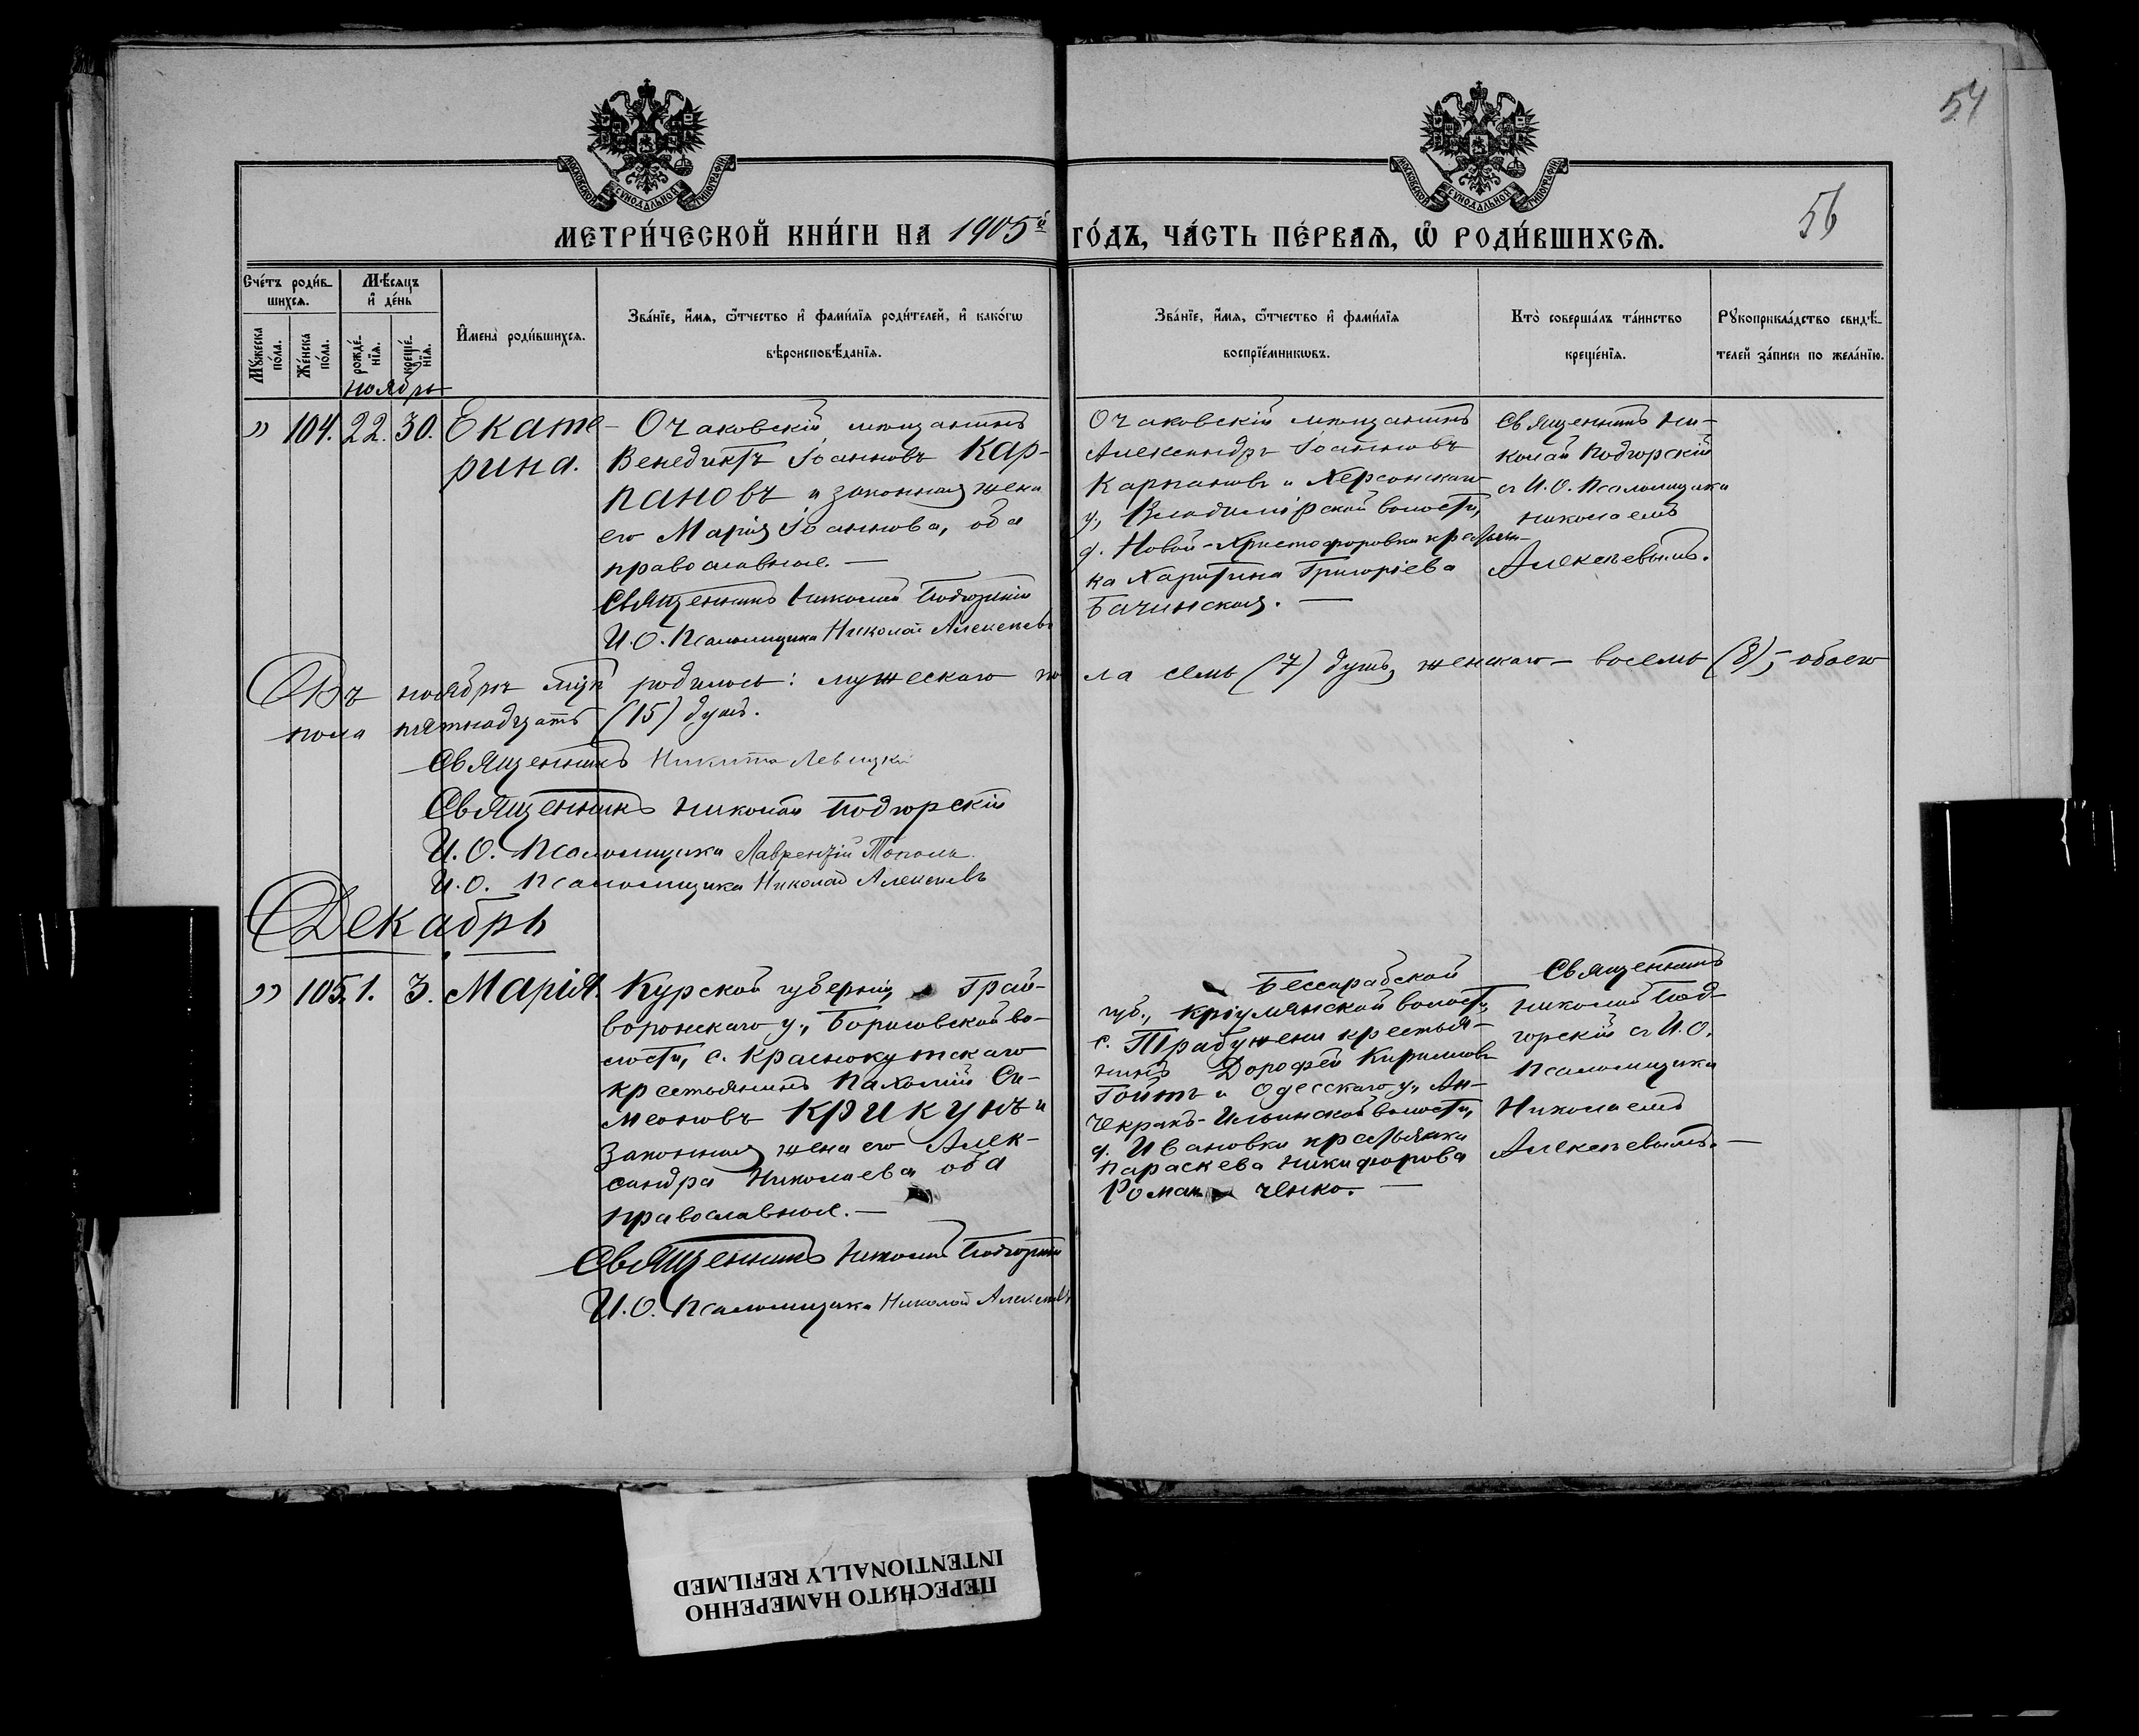 54
МОСКОВСКОЙ СѴНОДАЛЬНОЙ ТИПОГРАФІИ
МОСКОВСКОЙ СѴНОДАЛЬНОЙ ТИПОГРАФІИ
56
МЕТРИ́ЧЕСКОЙ КНИ́ГИ НА 1905й ГО́ДЪ, ЧА́СТЬ ПЕ́РВАѦ, Ѿ РОДИ́ВШИХСѦ.
Сче́тъ роди́в-
шихсѧ.
Мꙋ́жеска
по́ла.
Же́нска
по́ла.
Мѣ́сѧцъ
и҆ де́нь
рожде́-
нїѧ.
креще́-
нїѧ.
И҆мена̀ роди́вшихсѧ.
Зва́нїе, и҆́мѧ, ѻ҆́тчество и҆ фами́лїѧ роди́телей, и҆ како́гѡ
вѣроисповѣ́данїѧ.
Зва́нїе, и҆́мѧ, ѻ҆́тчество и҆ фами́лїѧ
воспрїе́мникѡвъ.
Кто̀ соверша́лъ та́инство
креще́нїѧ.
Рꙋкоприкла́дство свидѣ́-
телей за́писи по жела́нїю.
ноябрь
" 104. 22. 30.
Екате-
рина.
Очаковскій мещанинъ
Венедиктъ Іоанновъ Кар-
пановъ и законная жена
его Марія Іоаннова, оба
православные. —
Священникъ Николай Подгорскій
И. О. Псаломщика Николай Алексѣевъ
Очаковскій мещанинъ
Александръ Іоанновъ
Карпановъ и Херсонскаго
у., Владимірской волости,
д. Новой-Христофоровки крестьян-
ка Харитина Григоріева
Бачинская. —
Священникъ Ни-
колай Подгорскій
съ И. О. Псаломщика
Николаемъ
Алексѣевымъ.
Въ ноябрѣ м-цѣ родилось: мужескаго по ла семь (7) душъ, женскаго — восемь (8), — обоего
пола пятнадцать (15) душъ.
Священникъ Никита Левицкій
Священникъ Николай Подгорскій
И. О. Псаломщика Лаврентій Тополь
И. О. Псаломщика Николай Алексѣевъ
Декабрь
" 105. 1. 3.
Марія.
Курской губерніи, Грай-
воронскаго у., Борисовской во-
лости, с. Краснокутскаго
крестьянинъ Пахомій Си-
меоновъ Крикунъ и
законная жена его Алек-
сандра Николаева оба
православные. —
Священникъ Николай Подгорскій
И. О. Псаломщика Николай Алексѣевъ
Бессарабской
губ., Кріулянской волости,
с. Трабужени крестья-
нинъ Дорофей Кирилловъ
Гойтъ и Одесскаго у., Ан-
чекракъ-Ильинской волости,
д. Ивановки крестьянка
Параскева Никифорова
Роман ченко. —
Священникъ
Николай Под-
горскій съ И. О.
Псаломщика
Николаемъ
Алексѣевымъ. —
ПЕРЕСНЯТО НАМЕРЕННО
INTENTIONALLY REFILMED